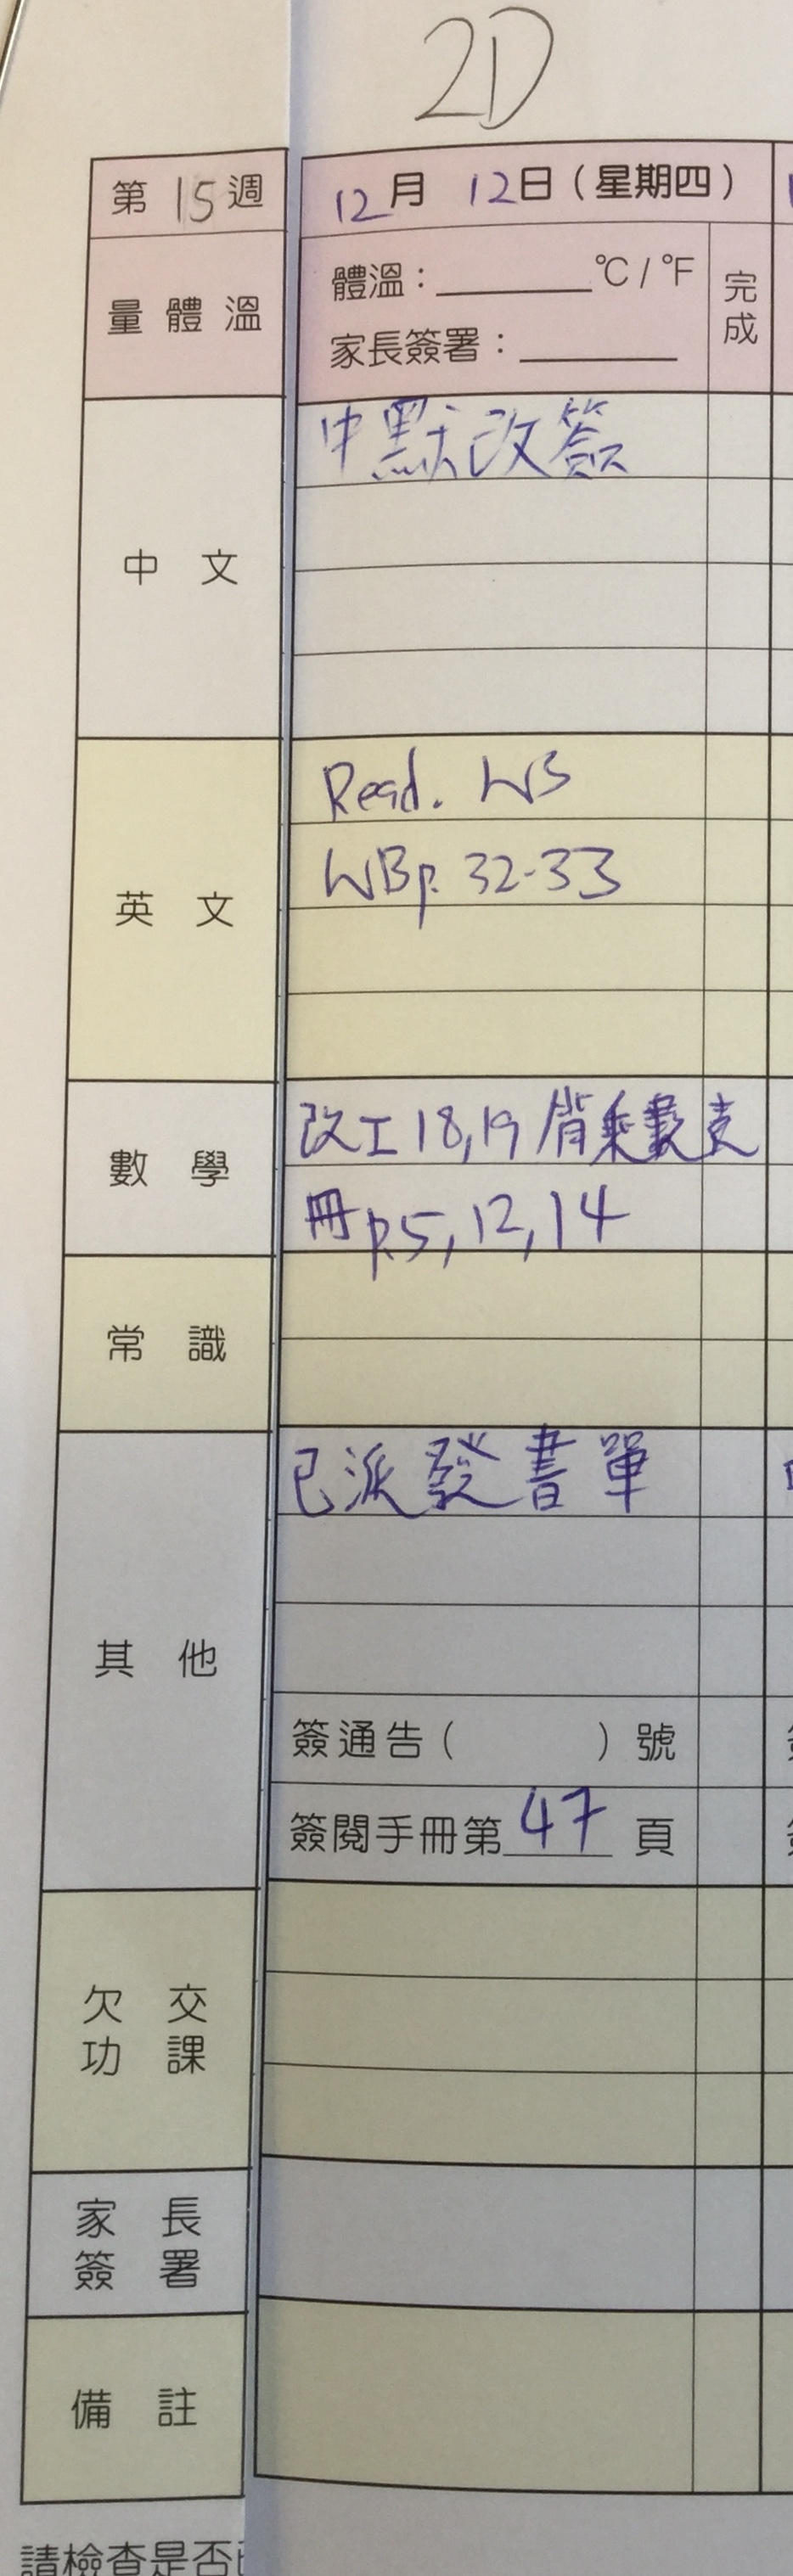 2D
第15週
12月 12日(星期四)
量體溫
體溫:______℃/℉
家長簽署:______
完成
中文
中默改簽
英文
Read. WS
WBp. 32-33
數學
改工18,19 背乘數表
冊p.5,12,14
常識
其他
已派發書單
簽通告( )號
簽閱手冊第47頁
欠交
功課
家長
簽署
備註
請檢查是否